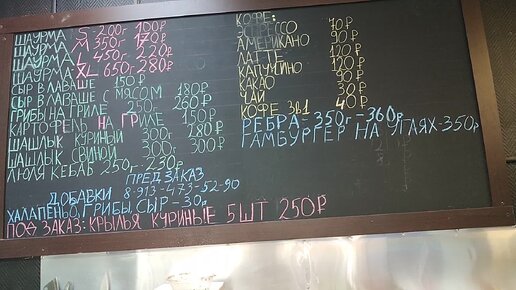 ШАУРМА S-200г 100₽
ШАУРМА M 350г 170₽
ШАУРМА L 450г 220₽
ШАУРМА XL 650г 280₽
СЫР В ЛАВАШЕ 150₽
СЫР В ЛАВАШЕ С МЯСОМ 180₽
ГРИБЫ НА ГРИЛЕ 250г 260₽
КАРТОФЕЛЬ НА ГРИЛЕ 150₽
ШАШЛЫК КУРИНЫЙ 300г 280₽
ШАШЛЫК СВИНОЙ 300г 300₽
ЛЮЛЯ КЕБАБ 250г-230₽
ПРЕДЗАКАЗ
8-913-473-52-90
ДОБАВКИ
ХАЛАПЕНЬО, ГРИБЫ, СЫР-30₽
ПОД ЗАКАЗ: КРЫЛЬЯ КУРИНЫЕ 5ШТ 250₽
КОФЕ:
ЭСПРЕССО 70₽
АМЕРИКАНО 90₽
ЛАТТЕ 120₽
КАПУЧИНО 120₽
КАКАО 90₽
ЧАЙ 30₽
КОФЕ 3в1 40₽
РЕБРА-350г-360₽
ГАМБУРГЕР НА УГЛЯХ-350₽